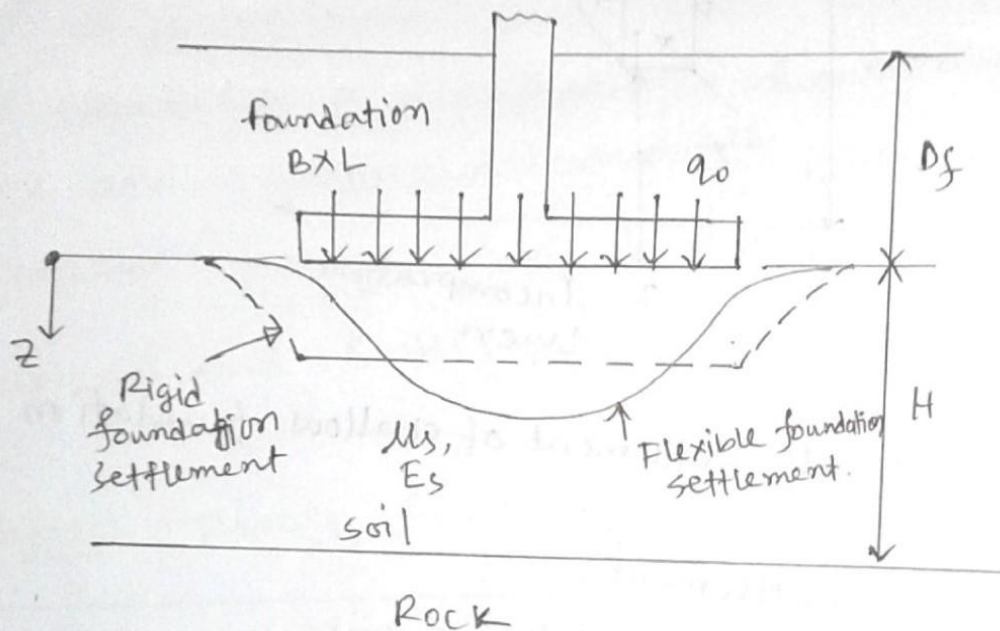 foundation
B×L
q₀
Df
Z
Rigid
foundation
settlement
μs,
Es
Flexible foundation
settlement.
H
soil
ROCK